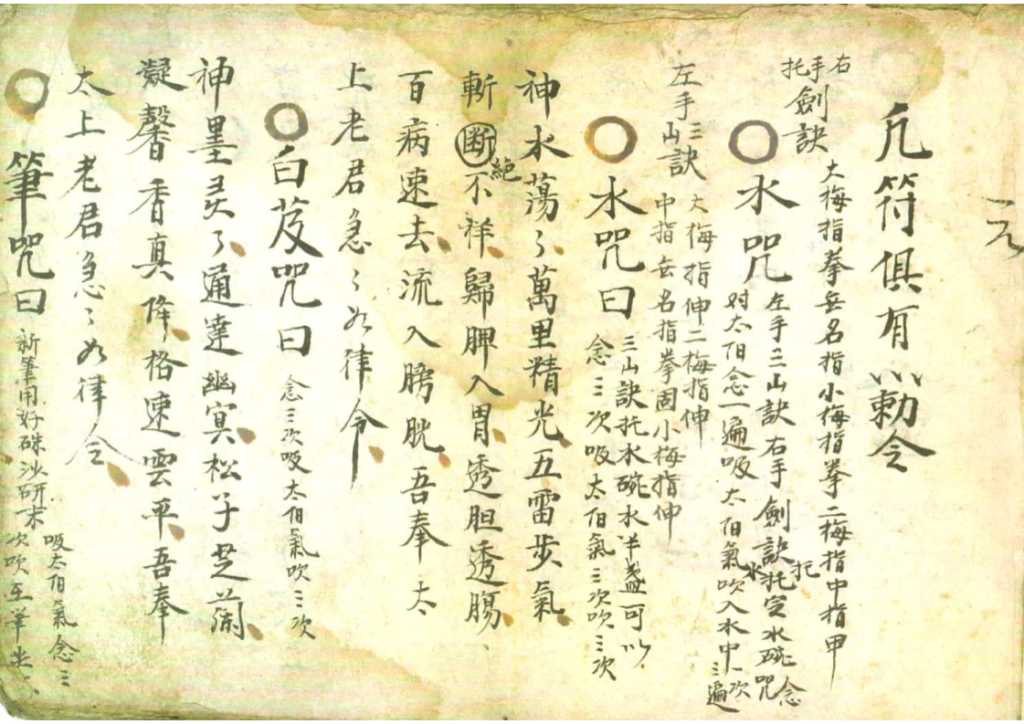 凡符俱有敕令
右手托劍訣 大梅指拳無名指小梅指拳二梅指中指甲
水咒 左手三山訣右手劍訣托定水碗念咒
对太阳念一遍吸太阳氣吹入水中一次三遍
左手三山訣 大梅指伸二梅指伸
中指無名指拳固小梅指伸
水咒曰 三山訣托水碗水半盏可以
念三次吸太阳氣三次吹三次
神水蕩々萬里精光五雷步氣
斬断絕不祥歸脾入胃透胆透腸
百病速去流入膀胱吾奉太
上老君急々如律令
白芨咒曰 念三次吸太阳氣吹三次
神墨灵々通達幽冥松子芝蘭
凝馨香真降格速雲平吾奉
太上老君急々如律令
筆咒曰 新筆用好硃沙研末
吸太阳氣念三
次吹至筆尖